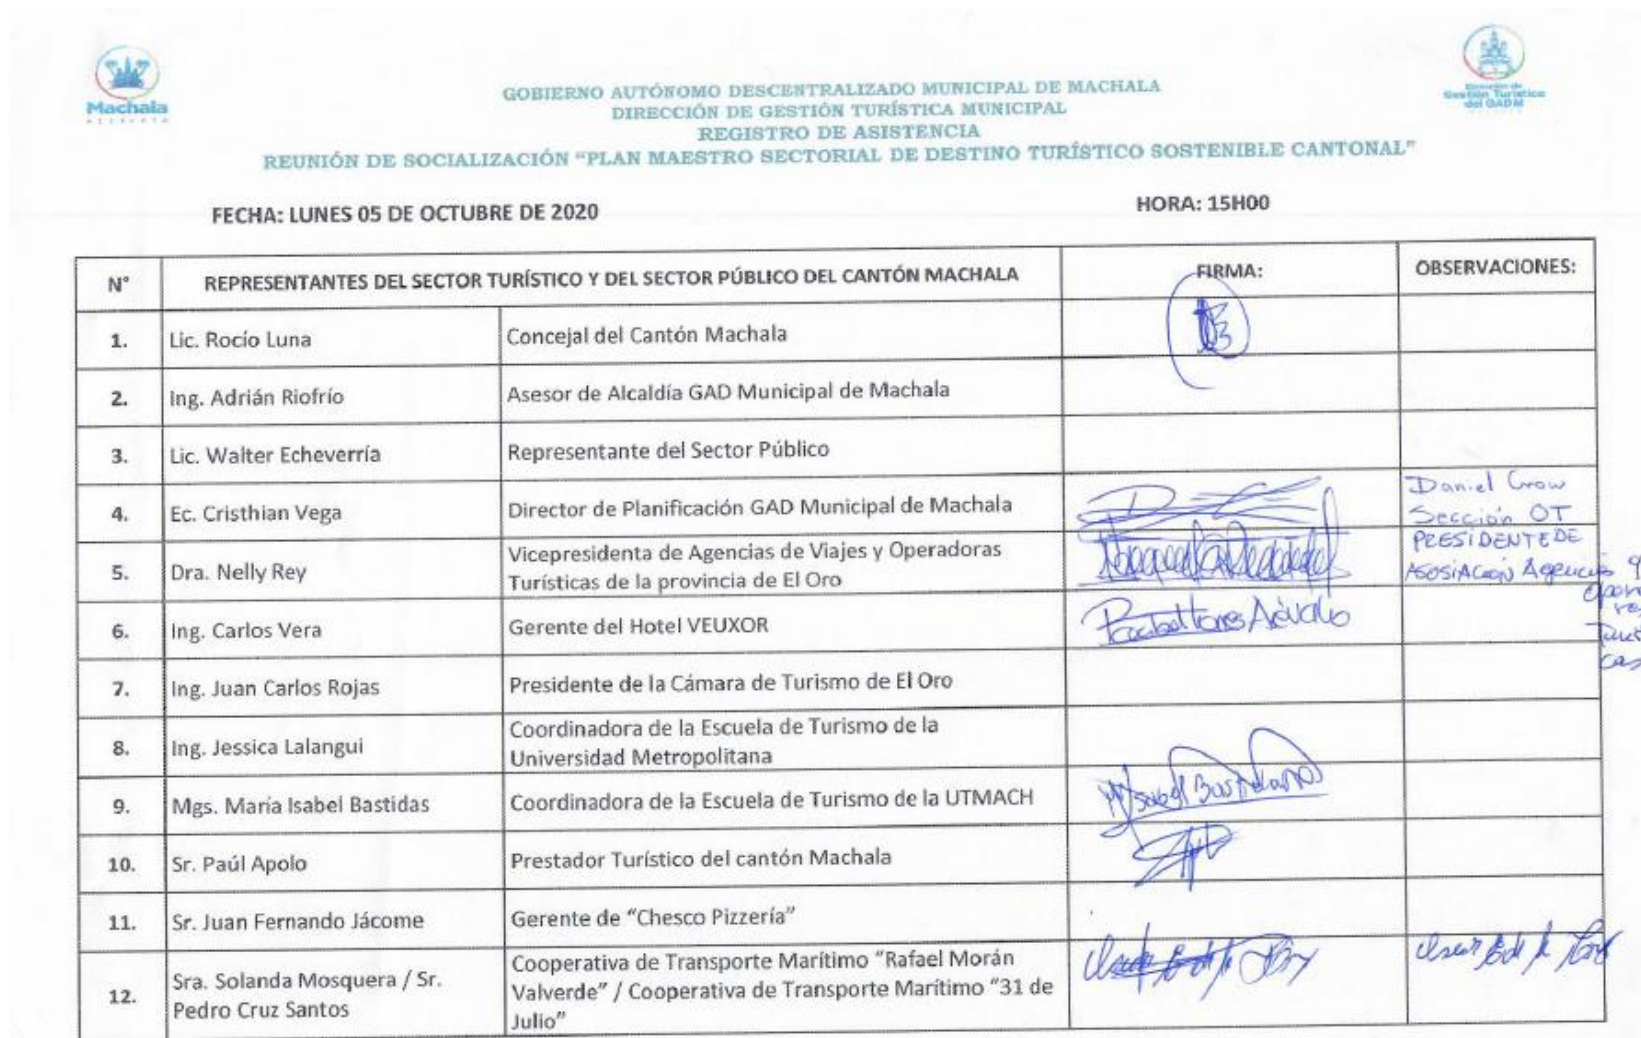 Machala
Dirección de
Gestión Turística
del GADM
GOBIERNO AUTÓNOMO DESCENTRALIZADO MUNICIPAL DE MACHALA
DIRECCIÓN DE GESTIÓN TURÍSTICA MUNICIPAL
REGISTRO DE ASISTENCIA
REUNIÓN DE SOCIALIZACIÓN “PLAN MAESTRO SECTORIAL DE DESTINO TURÍSTICO SOSTENIBLE CANTONAL”
FECHA: LUNES 05 DE OCTUBRE DE 2020 HORA: 15H00
N° REPRESENTANTES DEL SECTOR TURÍSTICO Y DEL SECTOR PÚBLICO DEL CANTÓN MACHALA FIRMA: OBSERVACIONES:
1. Lic. Rocío Luna Concejal del Cantón Machala
2. Ing. Adrián Riofrío Asesor de Alcaldía GAD Municipal de Machala
3. Lic. Walter Echeverría Representante del Sector Público
4. Ec. Cristhian Vega Director de Planificación GAD Municipal de Machala Daniel Crow
Sección OT
5. Dra. Nelly Rey Vicepresidenta de Agencias de Viajes y Operadoras
Turísticas de la provincia de El Oro
PRESIDENTE DE
ASOSIACION Agencias
6. Ing. Carlos Vera Gerente del Hotel VEUXOR
7. Ing. Juan Carlos Rojas Presidente de la Cámara de Turismo de El Oro
8. Ing. Jessica Lalangui Coordinadora de la Escuela de Turismo de la
Universidad Metropolitana
9. Mgs. María Isabel Bastidas Coordinadora de la Escuela de Turismo de la UTMACH
10. Sr. Paúl Apolo Prestador Turístico del cantón Machala
11. Sr. Juan Fernando Jácome Gerente de “Chesco Pizzería”
12. Sra. Solanda Mosquera / Sr.
Pedro Cruz Santos
Cooperativa de Transporte Marítimo “Rafael Morán
Valverde” / Cooperativa de Transporte Marítimo “31 de
Julio”